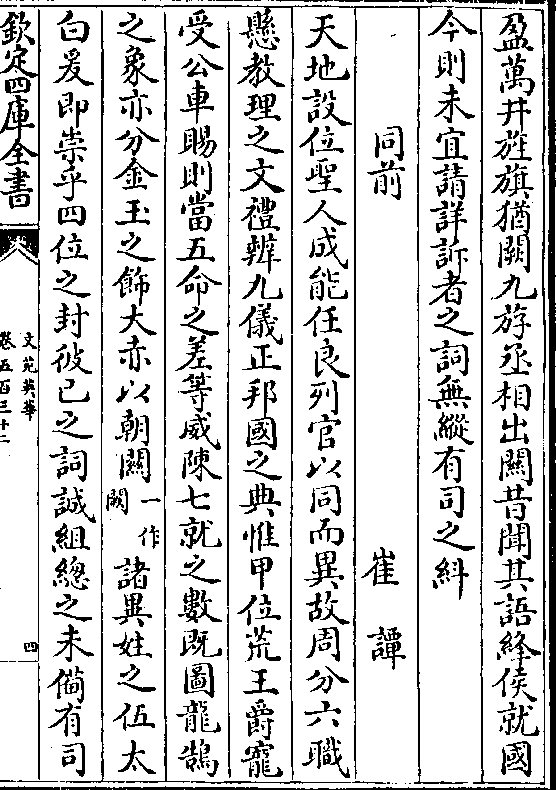 盈萬井旌旗猶闕九斿丞相出關昔聞其語絳侯就國
今則未宜請詳訴者之詞無縱有司之糾
同前 崔譚
天地設位聖人成能任良列官以同而異故周分六職
懸教理之文禮辨九儀正邦國之典惟甲位荒王爵寵
受公車賜則當五命之差等威陳七就之數既圖龍鵠
之象亦分金玉之飾大赤以朝關一作闕諸異姓之伍太
白爰即崇乎四位之封彼已之詞誠組總之未備有司
欽定四庫全書
文苑英華
卷五百三十二
四